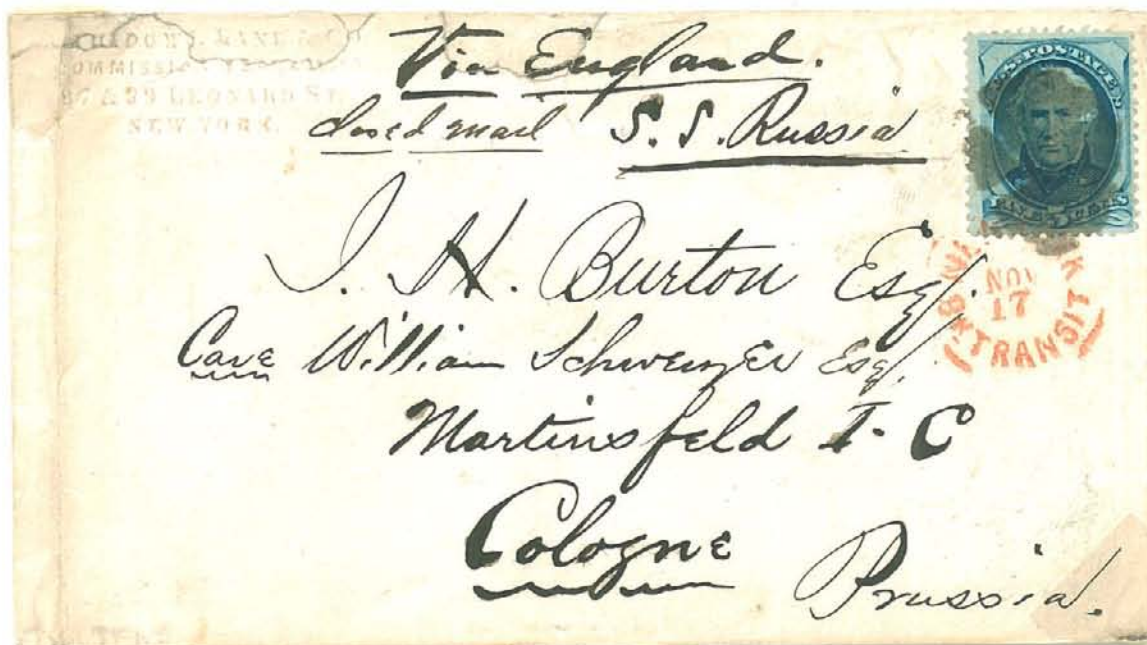 & CO
COMMISSION
& 39 LEONARD ST.
NEW YORK.
Via England.
closed mail S. S. Russia
U.S. POSTAGE
FIVE 5 CENTS
J. H. Burton Esq.
Care William Schwenzer Esq.
Martinsfeld I. C
Cologne
Prussia.
NEW YORK
NOV
17
BR TRANSIT